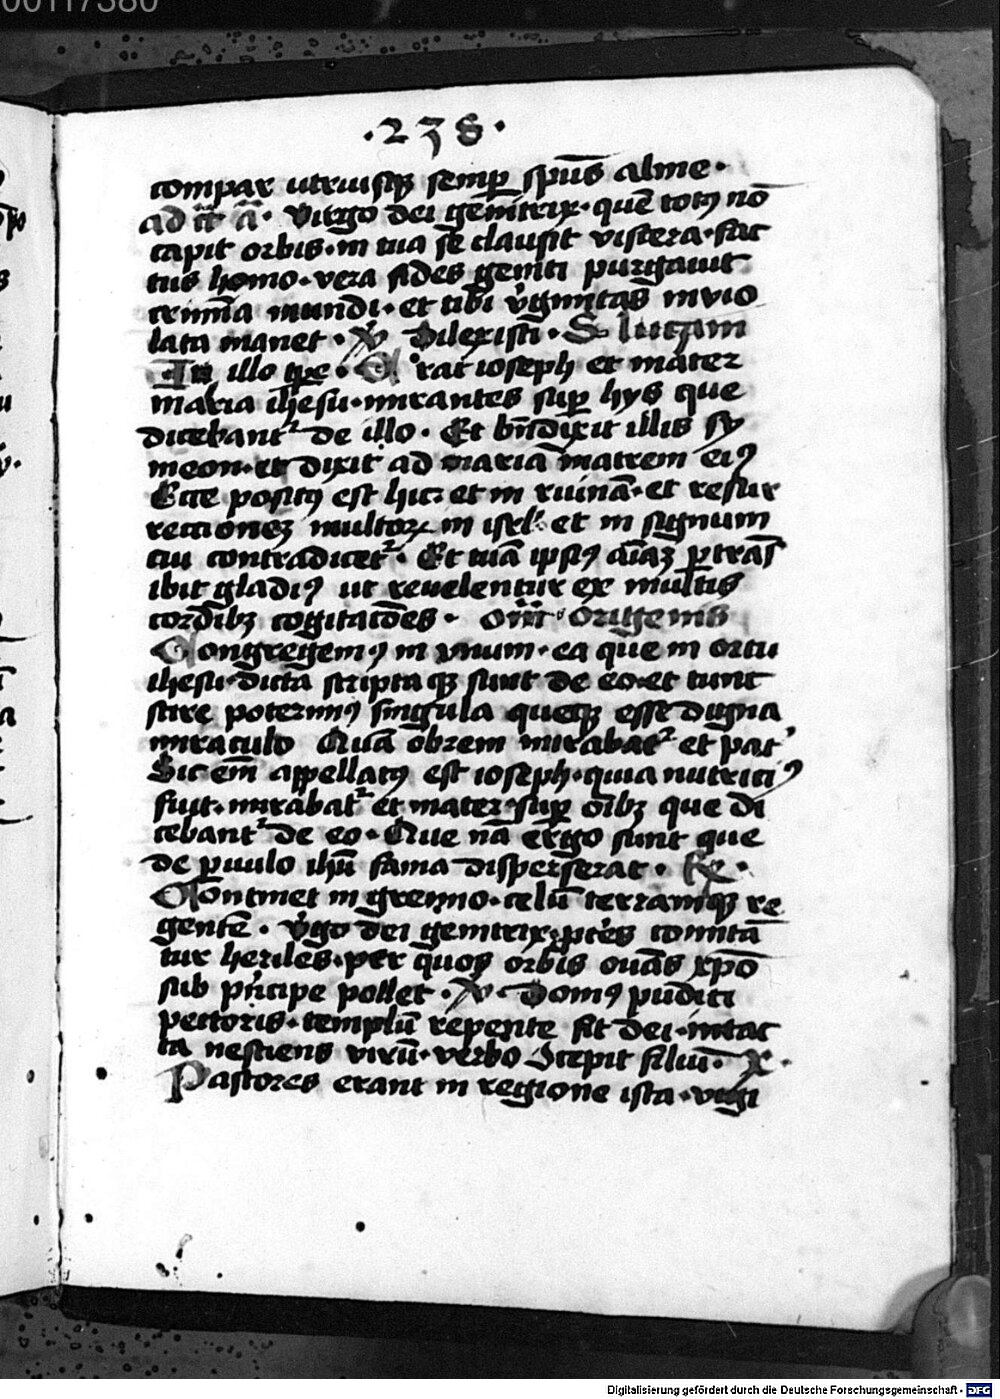 00117380
·238·
compar utriusqꝫ semꝑ sp̄us alme·
ad īīī ā· Virgo dei genitrix· quē totꝰ nō
capit orbis· in tua se clausit viscera· fac
tus homo· vera fides geniti purgavit
crimīa mundi· et tibi v̓ginitas invio
lata manet· v̓ Dilexisti· S lucam
In illo tꝑe· Erat ioseph et mater
maria ih̄esu· mirantes suꝑ hys que
dicebant᷑ de illo· Et bn̄dixit illis sy
meon· et dixit ad mariā matrem eiꝰ
Ecce positꝰ est hic· et in ruinā· et resur
rectionēꝫ multoꝝ in isrl̓· et in signum
cui contradicet᷑· Et tuā ipsiꝰ aīaꝫ ꝑtrās
ibit gladiꝰ ut revelentur ex multis
cordibꝫ cogitacōes· Origenis
Congregemꝰ in vnum· ea que in ortu
ihesu· dicta scriptaqꝫ sunt de eo· et tunc
scire poterimꝰ singula queqꝫ esse digna
miraculo Quā obrem mirabat᷑ et pat̓
Sic em̄ appellatꝰ est ioseph· quia nutriciꝰ
fuit· mirabat᷑ et mater· suꝑ oībꝫ que di
cebant᷑ de eo· Que nā ergo sunt que
de ꝑvulo ihū fama disperserat· Re·
Continet in gremio· celū terramqꝫ re
gentē· v̓go dei genitrix· ꝓcēs comitā
tur heriles· per quos orbis ovās xp̄o
sub pn̓cipe pollet· v̓· Domꝰ pudici
pectoris· templū repente fit dei· intac
ta nesciens virū· verbo ɔcepit filiū·
Pastores erant in regione ista· vigi
Digitalisierung gefördert durch die Deutsche Forschungsgemeinschaft - DFG